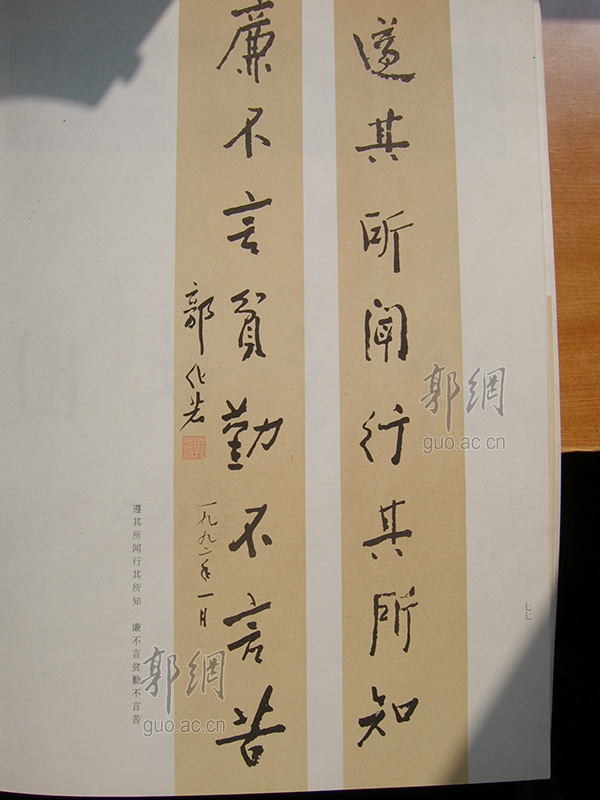 遵其所闻行其所知
廉不言贫勤不言苦
郭化若
一九九二年一月
遵其所闻行其所知　廉不言贫勤不言苦
七七
郭網
guo.ac.cn
郭網
guo.ac.cn